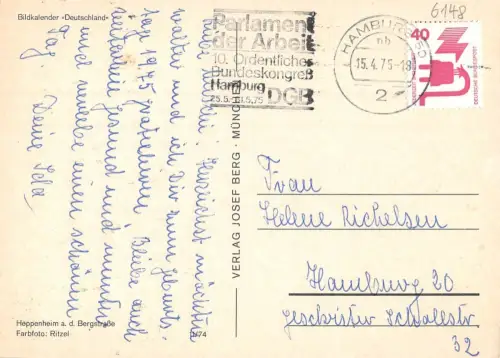 Bildkalender »Deutschland«
Herzlichst möchten
Walter und ich Dir zum Geburts-
tag 1975 gratulieren. Bleibe auch
weiterhin gesund und munter
und verlebe einen schönen
Tag
Deine Ida
Heppenheim a. d. Bergstraße
Farbfoto: Ritzel
5/74
VERLAG JOSEF BERG · MÜNCHEN
Parlament
der Arbeit
10. Ordentlicher
Bundeskongreß
Hamburg
25.5.
.5.75
DGB
HAMBURG
nb
15.4.75-18
2
6148
40
DEUTSCHE BUNDESPOST
Frau
Helene Richelsen
Hamburg 20
Geschwister Schollstr
32